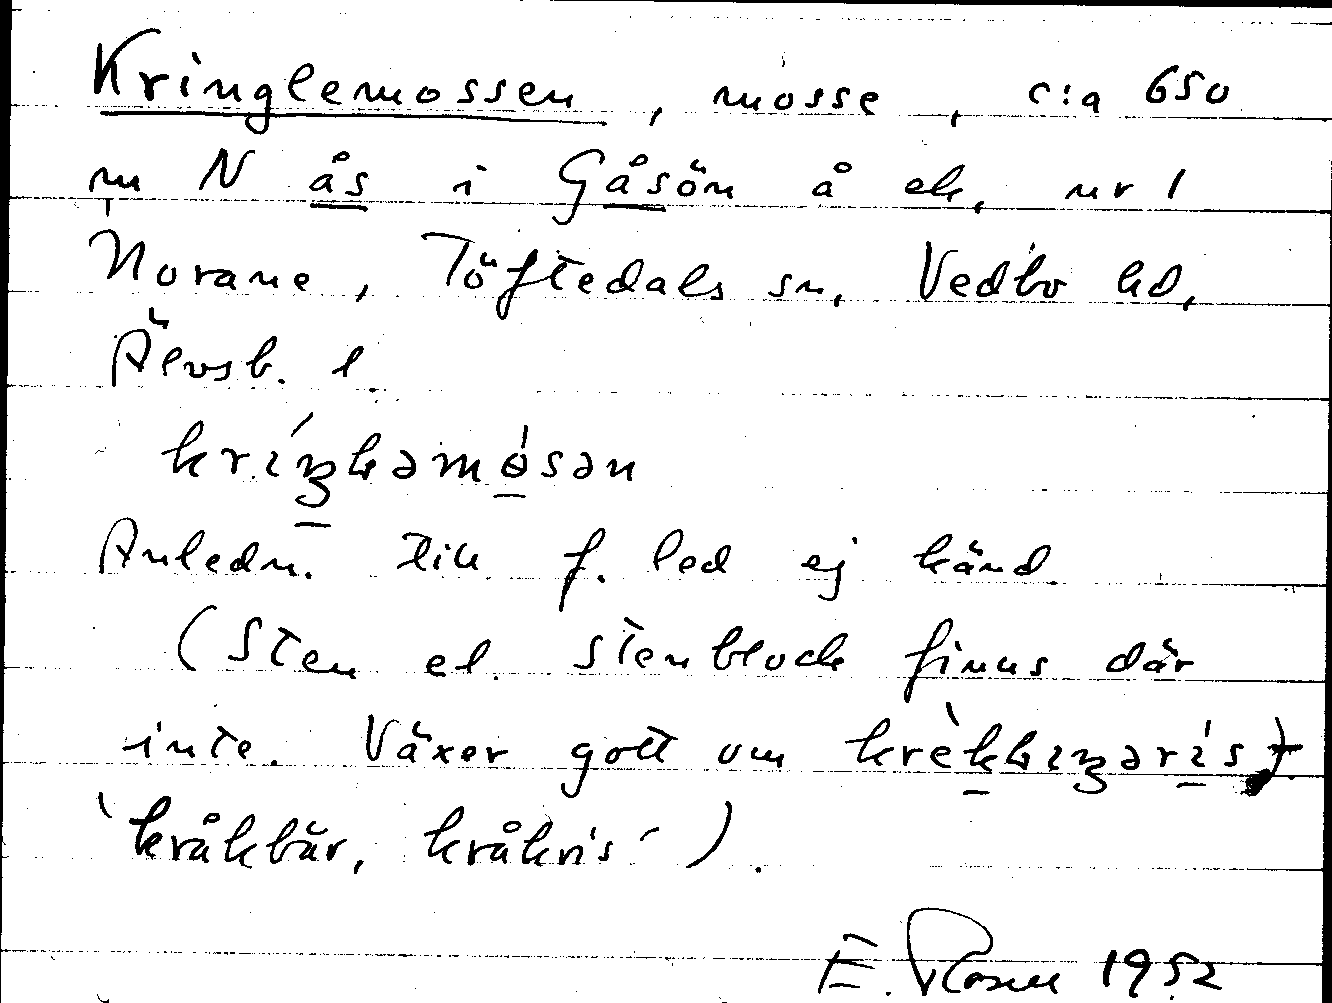 Kringlemossen, mosse, c:a 650
m N ås i Gåsön å ek. nr 1
Norane, Töftedals sn, Vedbo hd,
Älvsb. l.
Anledn. till f. led ej känd
(Sten el. stenblock finns där
inte. Växer gott om
'kråkbär, kråkris').
E. Rosen 1952